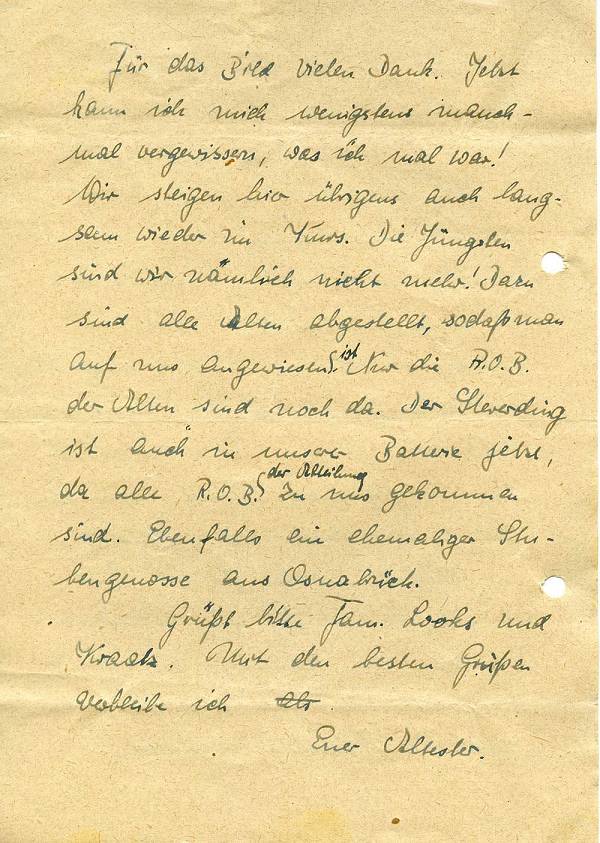 Für das Bild vielen Dank. Jetzt
kann ich mich wenigstens manch-
mal vergewissern, was ich mal war!
Wir steigen hier übrigens auch lang-
sam wieder im Kurs. Die Jüngsten
sind wir nämlich nicht mehr! Dazu
sind alle Alten abgestellt, sodaß man
auf uns angewiesen ist. Nur die R.O.B.
der Alten sind noch da. Der Steverding
ist auch in unserer Batterie jetzt,
da alle R.O.B. der Abteilung zu uns gekommen
sind. Ebenfalls ein ehemaliger Stu-
bengenosse aus Osnabrück.
Grüßt bitte Fam. Looks und
Kraatz. Mit den besten Grüßen
verbleibe ich als
Euer Ältester.